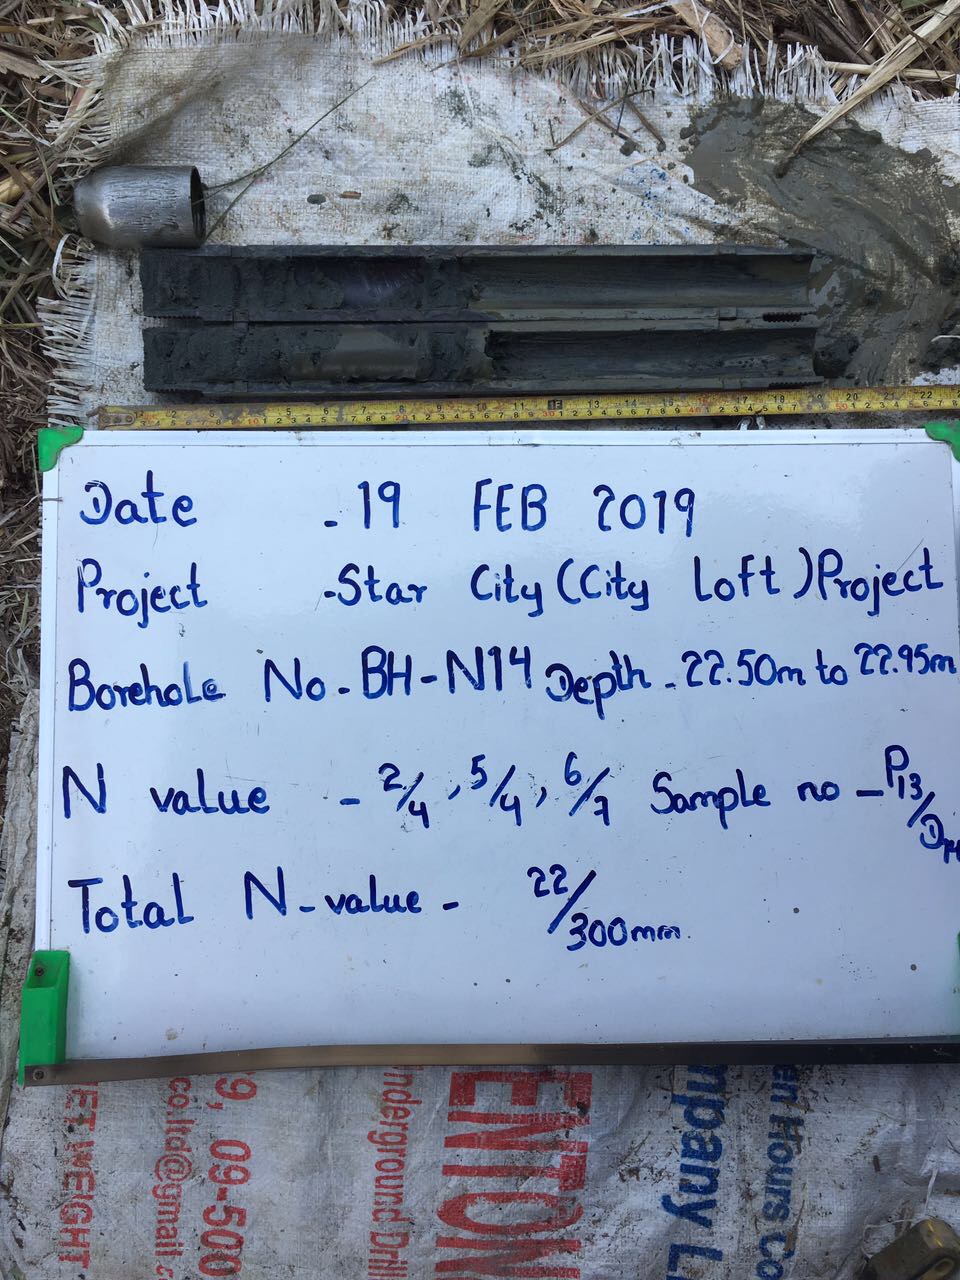 Date - 19 FEB 2019
Project - Star City (City Loft) Project
Borehole No - BH-N14 Depth - 22.50m to 22.95m
N value - 2/4, 5/4, 6/7 Sample no - P13/
Total N-value - 22/300mm
NET WEIGHT
co.ltd@gmail.c
9, 09-500
nderground Drill
ENTON
mpany L
en Hours Co